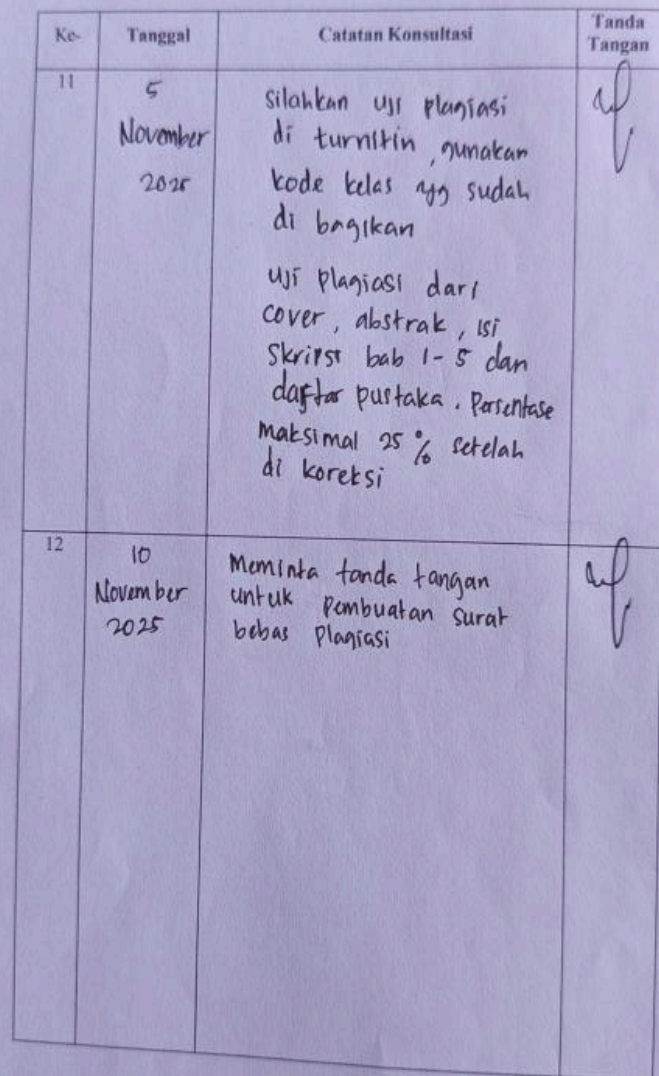 Ke- Tanggal Catatan Konsultasi Tanda Tangan
11
5
November
2025
silahkan uji plagiasi
di turnitin, gunakan
kode kelas yg sudah
di bagikan
uji plagiasi dari
cover, abstrak, isi
skripsi bab 1-5 dan
daftar pustaka. Persentase
maksimal 25% setelah
di koreksi
12
10
November
2025
Meminta tanda tangan
untuk pembuatan surat
bebas plagiasi